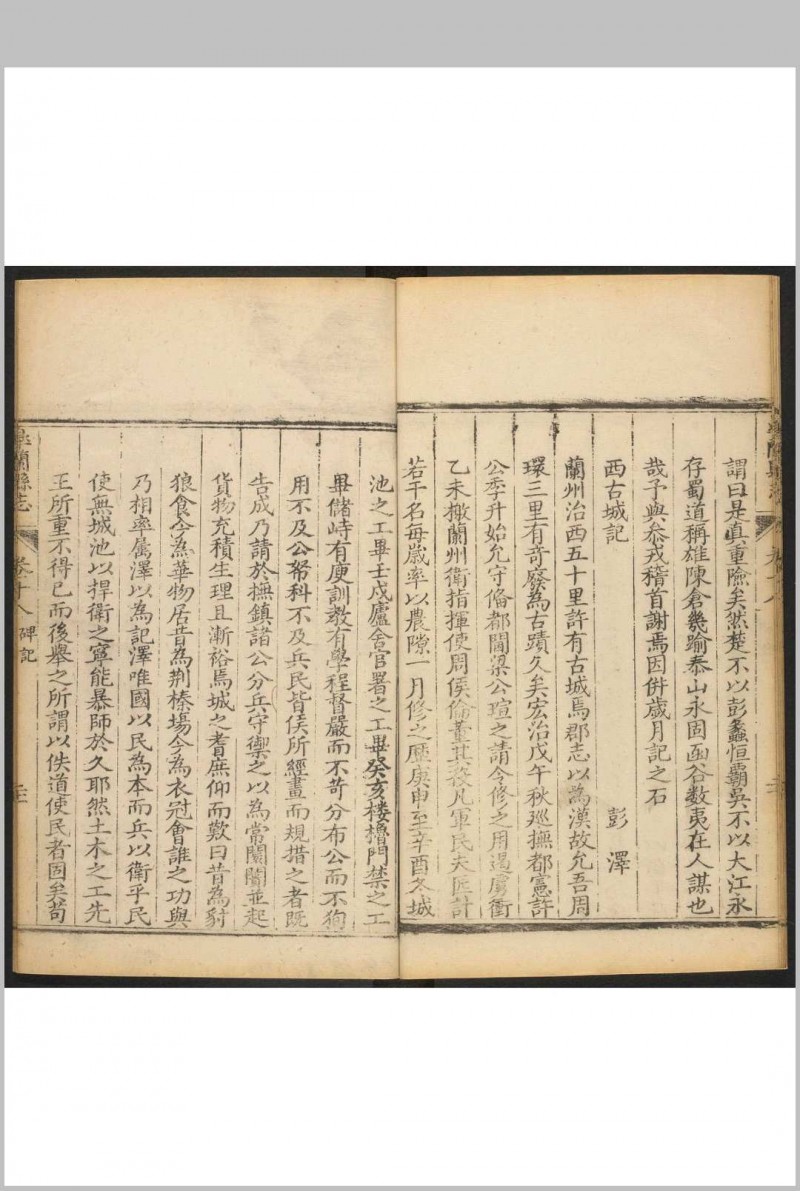 謂曰是真重險矣然楚不以彭蠡恒霸吳不以大江永
存蜀道稱雄陳倉幾踰泰山永固函谷数夷在人謀也
哉予與叅戎稽首謝焉因併歲月記之石
西古城記
彭澤
蘭州治西五十里許有古城焉郡志以為漢故允吾周
環三里有奇廢為古蹟久矣宏治戊午秋廵撫都憲許
公季升始允守俻都閫梁公瑄之請令修之用遏虜衝
乙未檄蘭州衛指揮使周侯倫董其役凡軍民夫匠計
若干名每歲率以農隙一月修之歴庚申至辛酉冬城
池之工畢壬戌廬舍官署之工畢癸亥楼櫓門禁之工
畢儲峙有庾訓教有學程督嚴而不苛分布公而不狥
用不及公帑科不及兵民皆侯所經畫而規措之者既
告成乃請於撫鎮諸公分兵守禦之以為常闤闠並起
貨物充積生理且漸裕焉城之耆庶仰而歎曰昔為豺
狼食今為華物居昔為荆榛場今為衣冠會誰之功與
乃相率属澤以為記澤唯國以民為本而兵以衛乎民
使無城池以捍衛之寧能暴師於久耶然土木之工先
王所重不得已而後舉之所謂以佚道使民者固矣苟
臯蘭縣志
卷十八
碑記